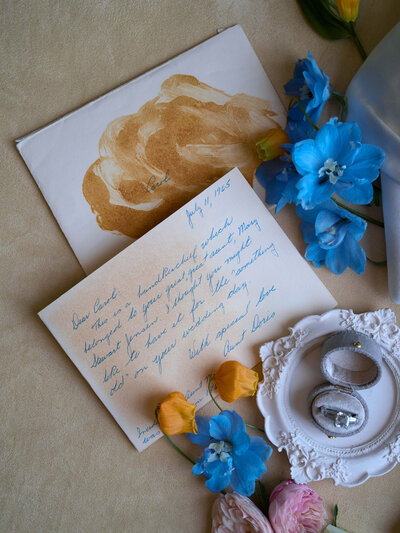 Carol
July 11, 1965
Dear Carol
This is a handkerchief which
belonged to your great, great aunt, Mary
Stewart Jensen. I thought you might
like to have it for the "something
old" on your wedding day.
With special love
Aunt Doris